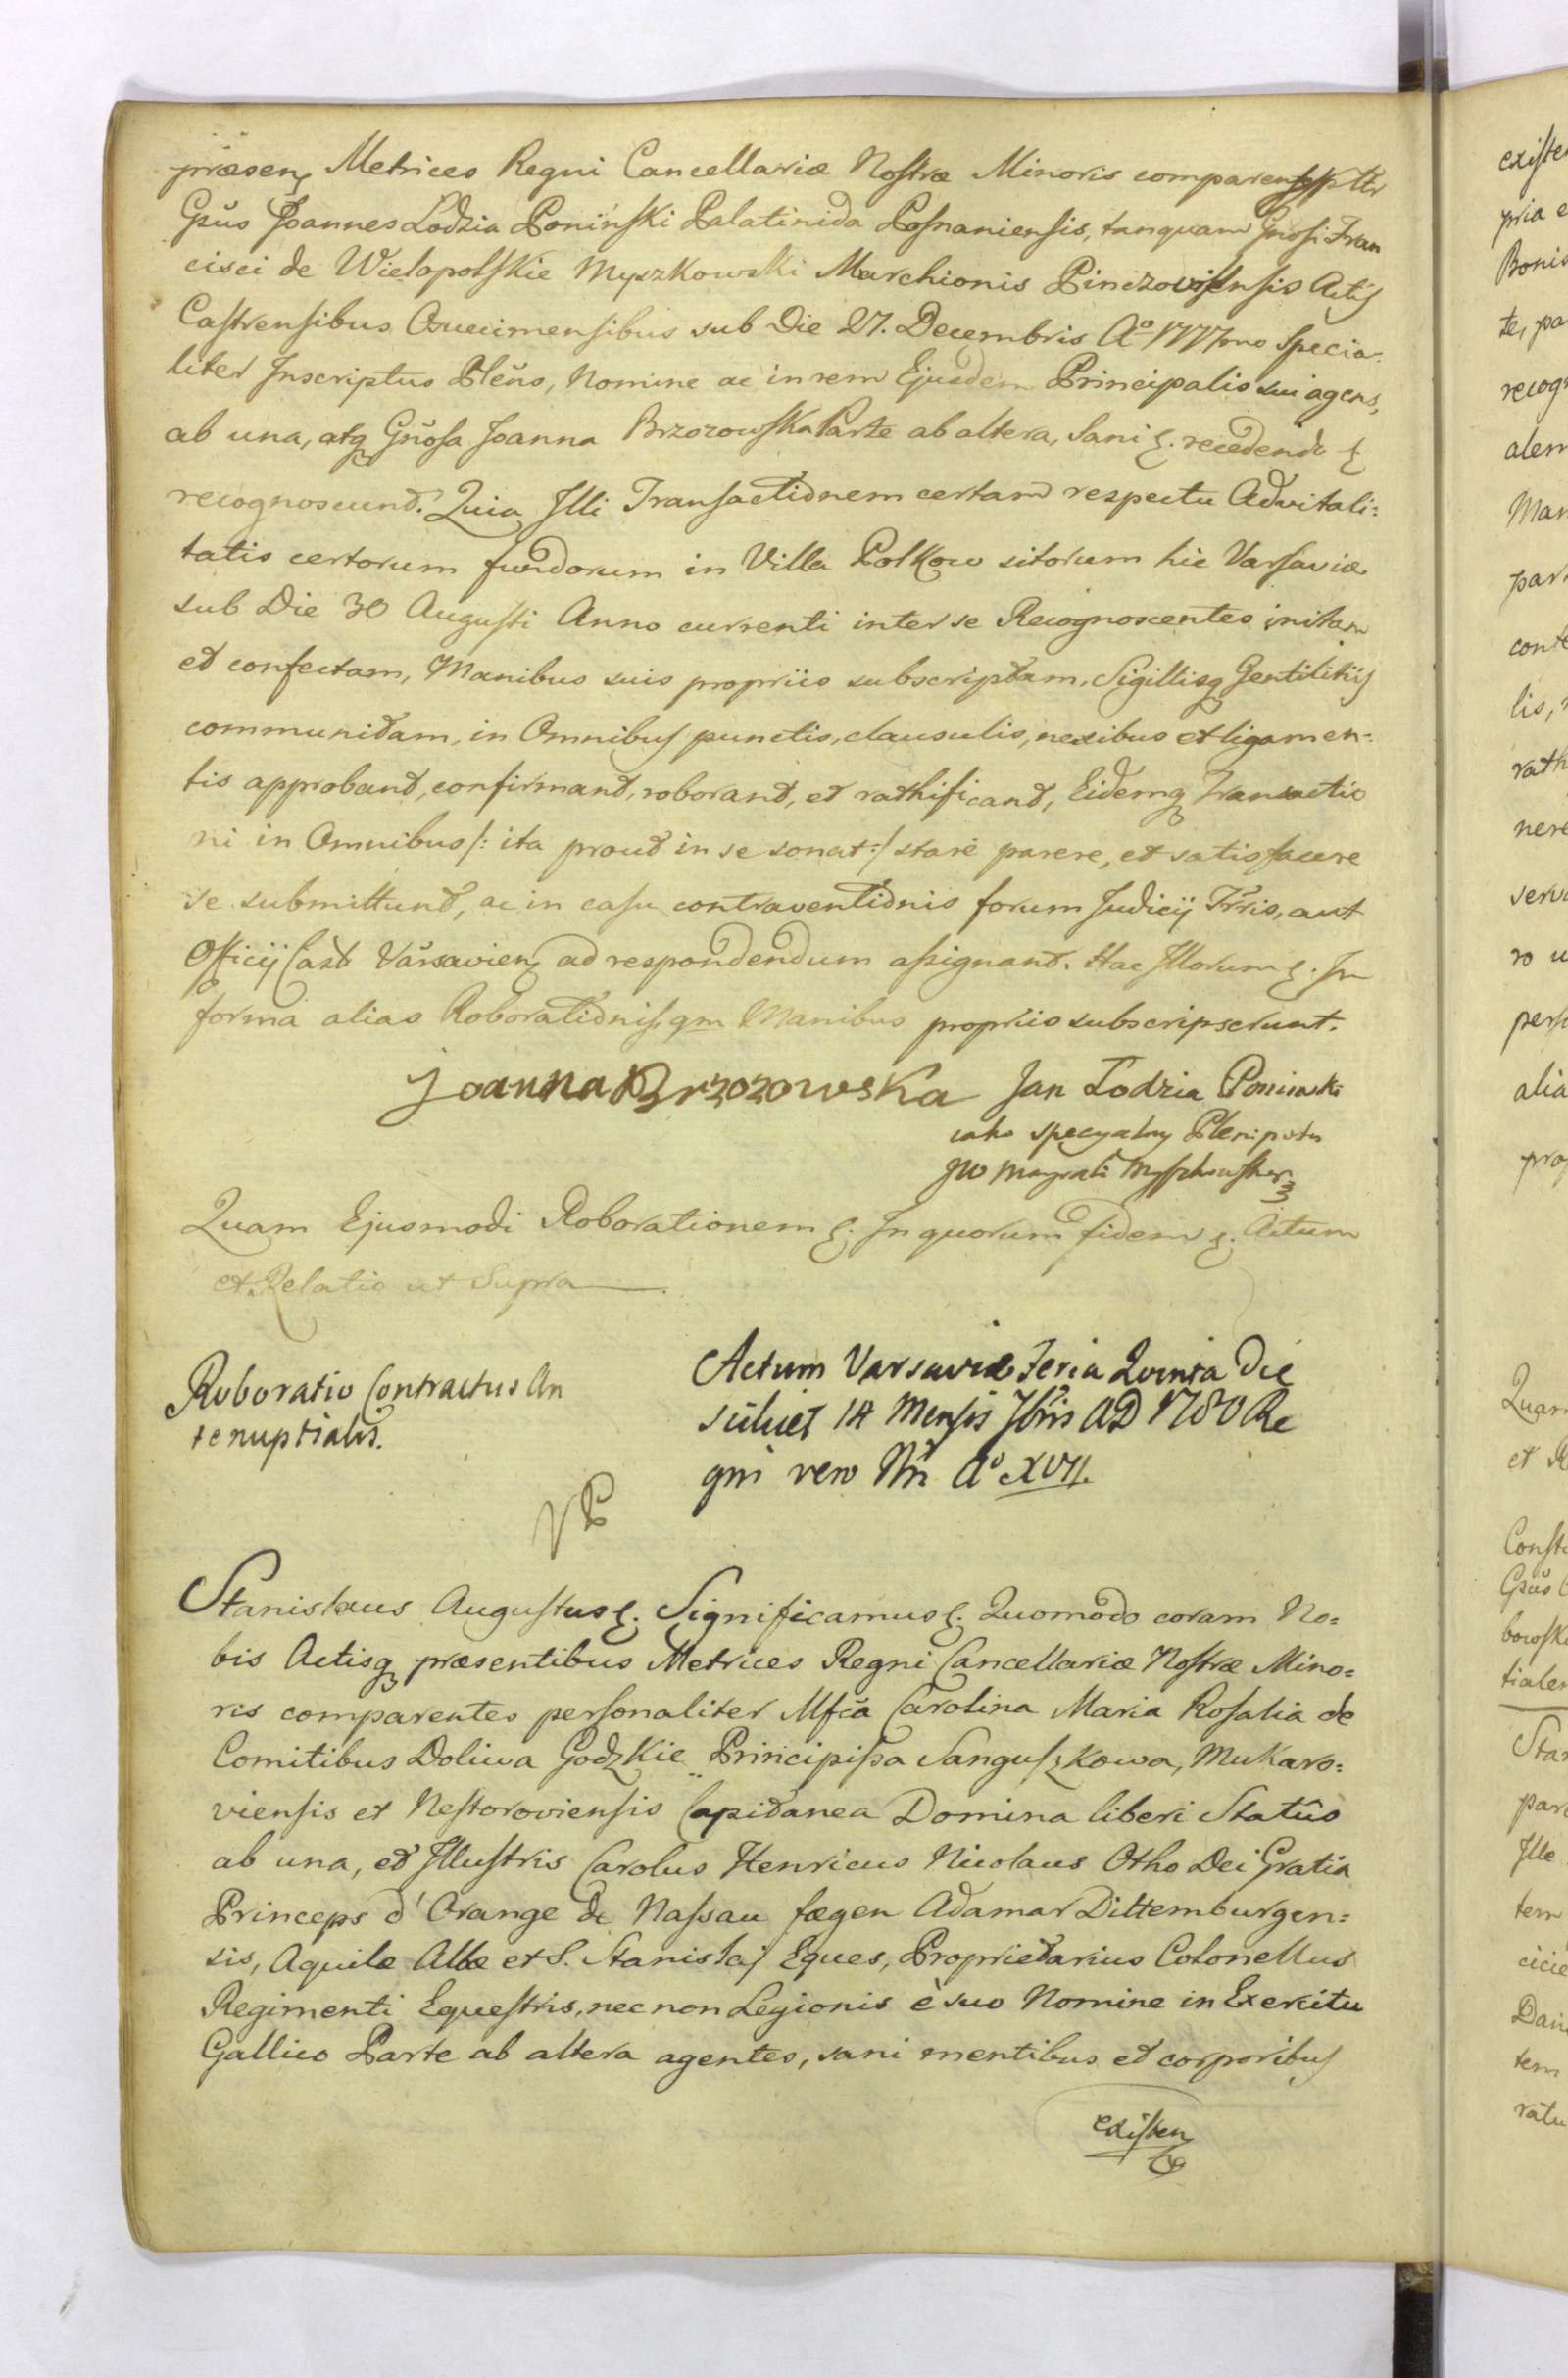 præsen Metrices Regni Cancellariæ Nostræ Minoris comparen
Gsus Joannes Lodzia Poninski Palatinida Posnaniensis, tanquam Gnosi Fran
cisci de Wielopolskie Myszkowski Marchionis Pinczoviensis Actis
Castrensibus Osuecimensibus sub Die 27. Decembris Aº 1777mo Specia
liter Inscriptus Pleñs, Nomine ac in rem Ejusdem Principalis sui agens,
ab una, atq Gnosa Joanna Brzozowska Parte ab altera, Sani &. recedend &
recognoscund. Quia Illi Transactionem certam respectu Advitali:
tatis certorum fundorum in Villa Polkow sitorum hic Varsaviæ
sub Die 30 Augusti Anno currenti inter se Recognoscentes initam
et confectam, Manibus suis propriis subscriptam, Sigillisq Gentilitijs
communitam, in Omnibus punctis, clausulis, nexibus et ligamen:
tis approband, confirmand, roborand, et rathificand, Eidemq Transactio
ni in Omnibus /: ita prout in se sonat :/ stare parere, et satisfacere
se submittund, ac in casu contraventionis forum Judicij Trris, aut
Officij Castr Varsavien ad respondendum assignand. Hac Illorum &. In
forma alias Roborationis qm Manibus propriis subscripserunt.
Joanna Brzozowska Jan Lodzia Poninski
iako specyalny Plenipotn
JW Margrabi Myszkowskiego
Quam Ejusmodi Roborationem &. In quorum fidem &. Actum
et Relatio ut Supra
Roboratio Contractus An
tenuptialis.
Actum Varsaviæ Feria Quinta Die
scilicet 14 Mensis 7bris AD 1780 Re
gni vero Nri Aº XVII.
Stanislaus Augustus &. Significamus &. Quomodo coram No=
bis Actisq præsentibus Metrices Regni Cancellariæ Nostræ Mino=
ris comparentes personaliter Mfca Carolina Maria Rosalia de
Comitibus Doliwa Godzkie Principissa Sanguszkowa, Mukaro=
viensis et Nestoroviensis Capitanea Domina liberi Statûs
ab una, et Illustris Carolus Henricus Nicolaus Otho Dei Gratia
Princeps d'Orange de Nassau sægen Adamar Dittemburgen=
sis, Aquilæ Albæ et S. Stanislaj Eques, Proprietarius Colonellus
Regimenti Equestris, nec non Legionis è suo Nomine in Exercitu
Gallico Parte ab altera agentes, sani mentibus et corporibus
existen